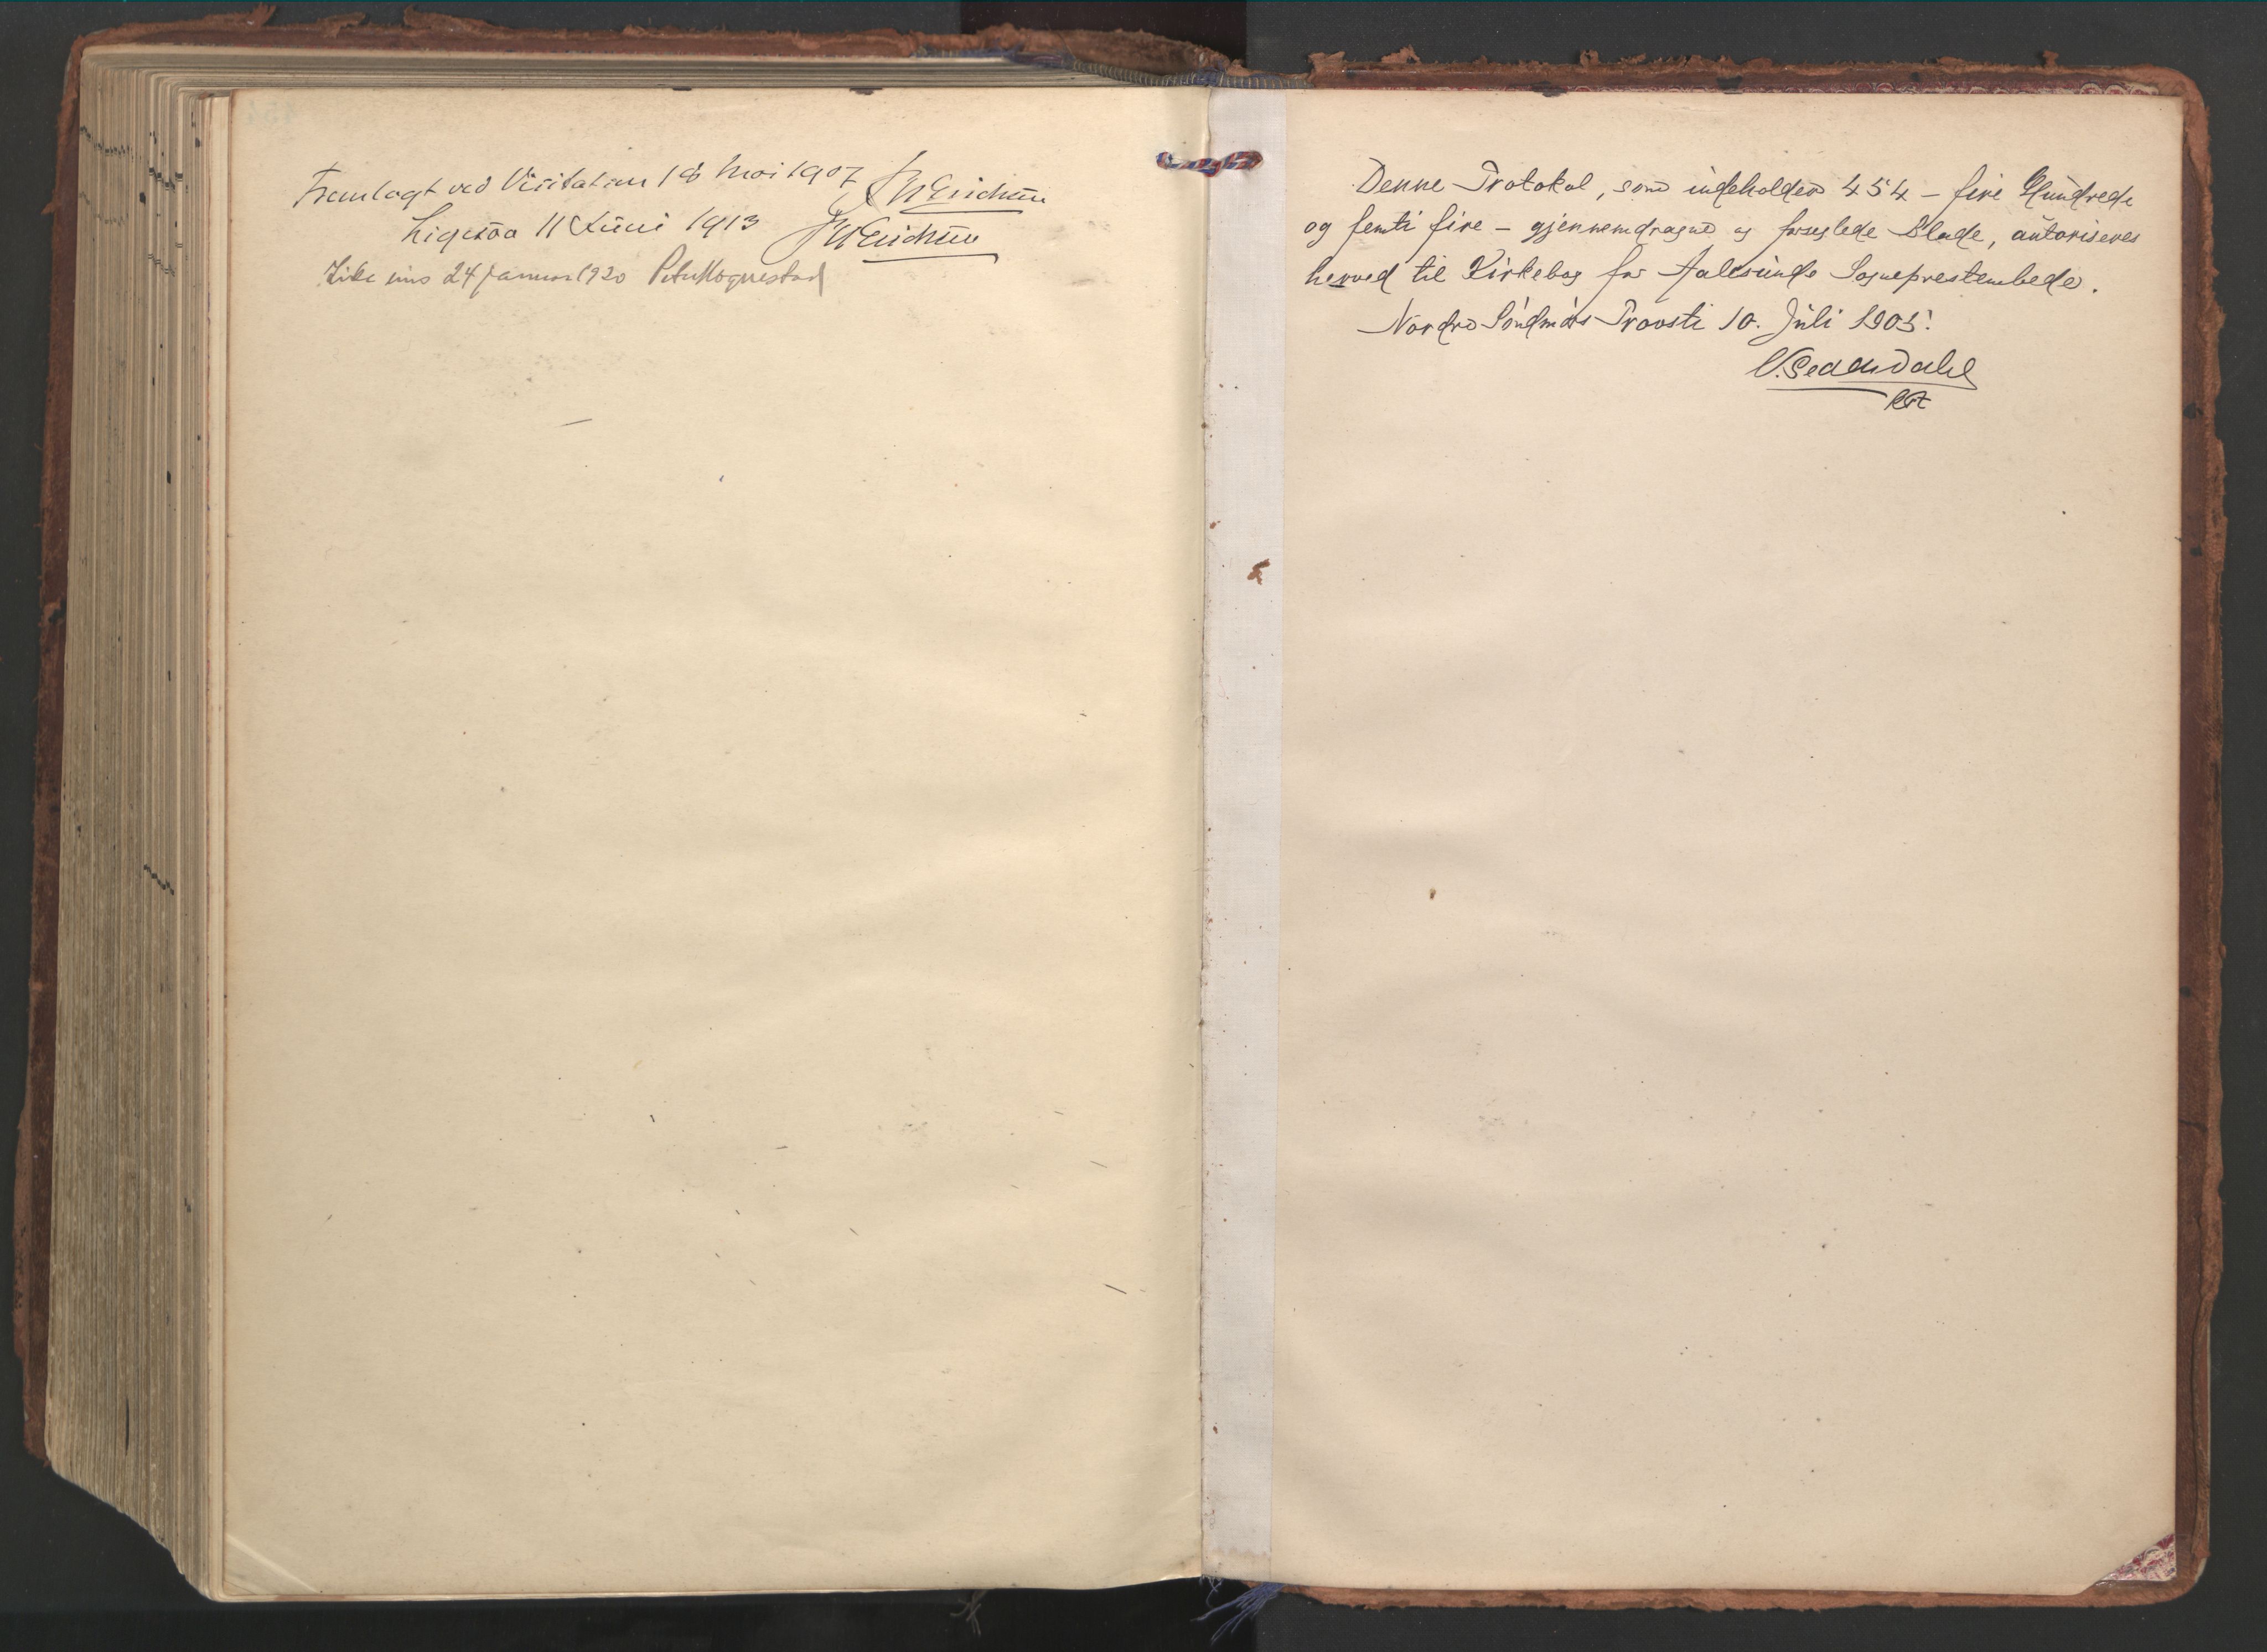 Fremlagt ved Visitatsen 18 Mai 1907 J W Erichsen
Ligesaa 11 Juni 1913 J W Erichsen
Like eins 24 Januar 1920 Peter Hognestad
Denne Protokol, som indeholder 454 – fire Hundrede
og femti fire – gjennemdragne og forseglede Blade, autoriseres
herved til Kirkebog for Aalesunds Sogneprestembede.
Nordre Söndmörs Provsti 10. Juli 1905.